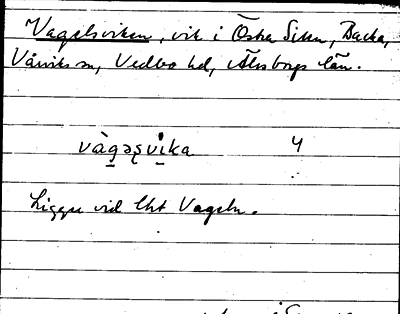 Vagelsviken, vik i Östra Silen, Backa,
Vårviks sn, Vedbo hd, Älvsborgs län.
vàgəʂvika 4
Ligger vid lht Vageln.